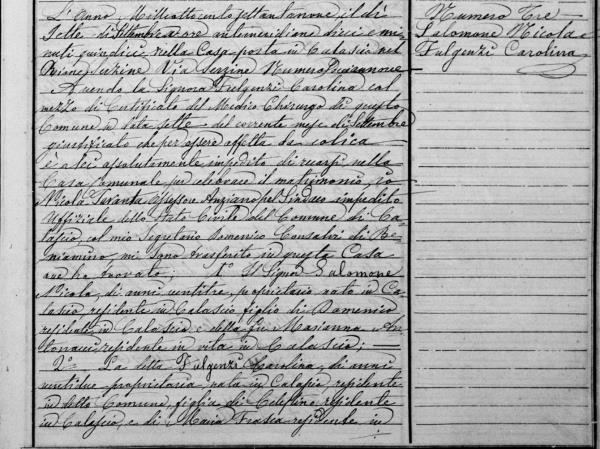 L'Anno Milleottocentosettantanove il dì
sette di Settembre a ore antemeridiane dieci e mi=
nuti quindici nella Casa posta in Calascio nel
Rione Via Numero
Avendo la Signora Fulgenzi Carolina col
mezzo di Certificato del Medico Chirurgo di questo
Comune in data sette del corrente mese di Settembre
giustificato che per essere affetta da colica
è a lei assolutamente impedito di recarsi nella
Casa Comunale per celebrare il matrimonio, io
Nicola Assessore Anziano pel Sindaco impedito
Uffiziale dello Stato Civile del Comune di Ca=
lascio, col mio Segretario Domenico Consalvi di Be=
niamino, mi sono trasferito in questa Casa
ove ho trovato; 1° Il Signor Salomone
Nicola, di anni ventitre, proprietario nato in Ca=
lascio, residente in Calascio figlio di Domenico
residente in Calascio e della fu Marianna An=
tonacci, residente in vita in Calascio;
2° La detta Fulgenzi Carolina, di anni
ventidue proprietaria nata in Calascio, residente
in detto Comune, figlia di Celestino residente
in Calascio, e di Maria Frasca residente in
Numero Tre
Salomone Nicola e
Fulgenzi Carolina